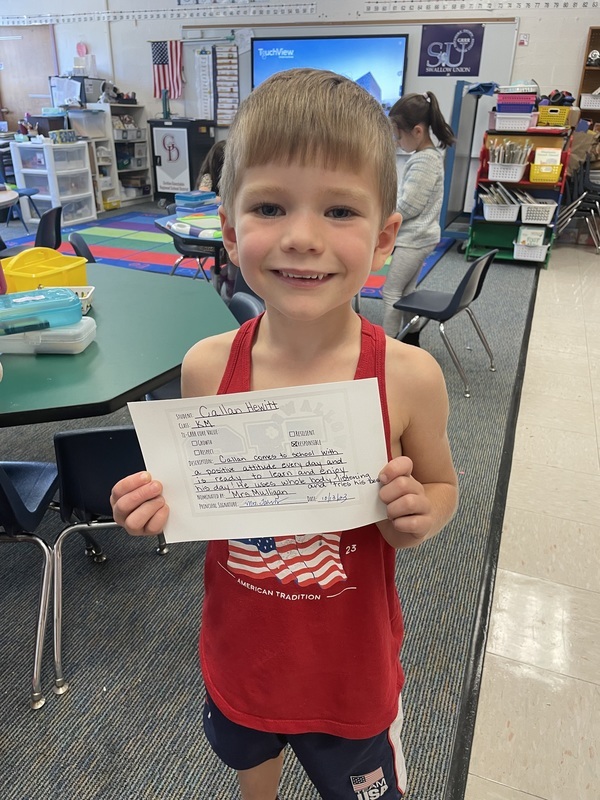 TouchView
SU
SWALLOW UNION
STUDENT: Callan Hewitt
CLASS: KM
GROWTH
RESILIENT
RESPECT
RESPONSIBLE
DESCRIPTION: Callan comes to school with
a positive attitude every day and
is ready to learn and enjoy
his day! He uses whole body listening
and tries his best
NOMINATED BY: Mrs. Mulligan
PRINCIPAL SIGNATURE:
DATE:
23
AMERICAN TRADITION
TEAM
USA